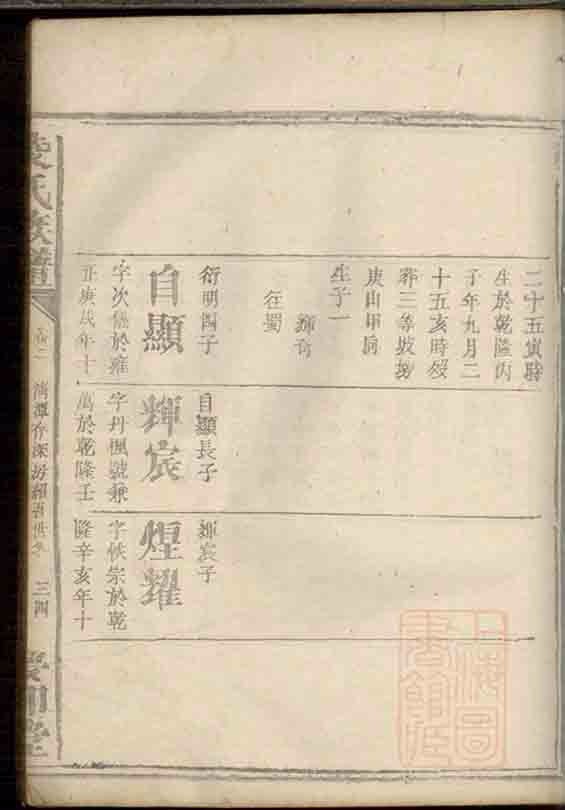 二十五寅時
生於乾隆丙
子年九月二
十五亥時歿
葬三等坡塝
庚山甲向
生子一
輝奇
往蜀
衍明四子
自顯
字次 於雍
正庚戌年十
自顯長子
輝宸
字丹楓號兼
萬於乾隆壬
輝宸子
煌耀
字帙宗於乾
隆辛亥年十
氏族譜
卷二
三四
上海圖
書館藏